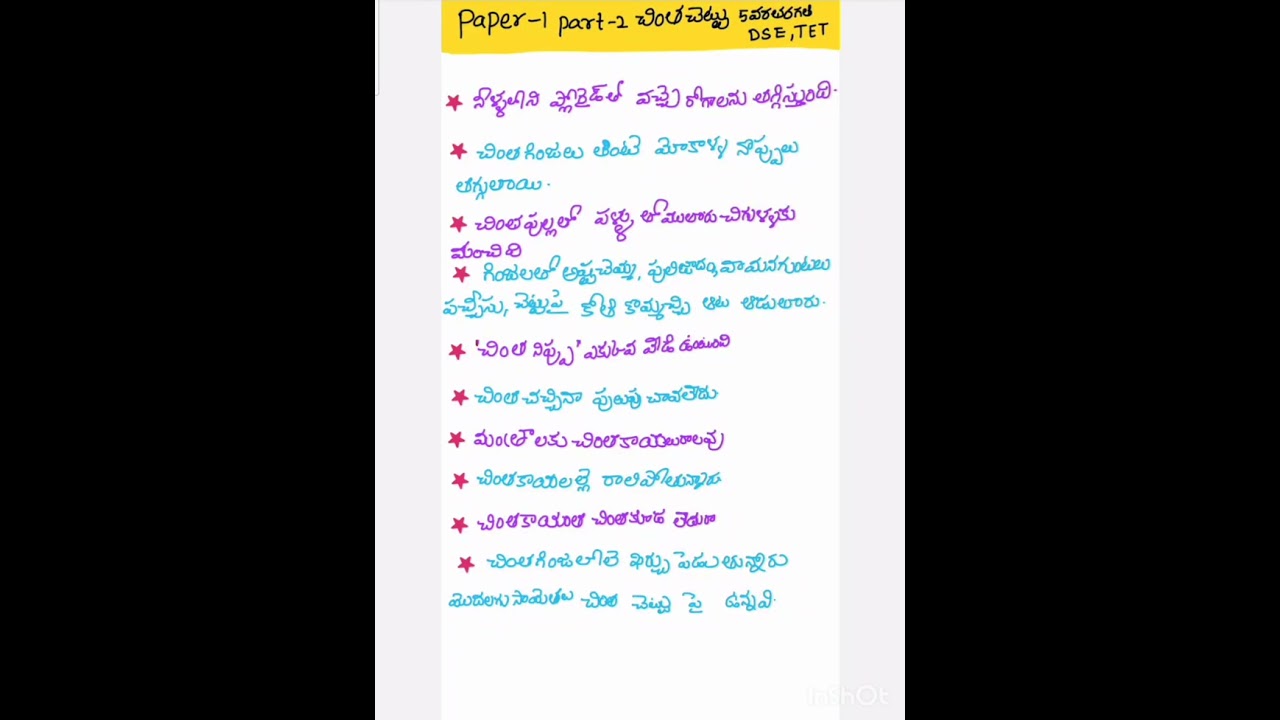 Paper-1 part-2 చింతచెట్టు 5వతరగతి
DSE, TET
★ నీళ్ళలోని ఫ్లోరైడ్‌తో వచ్చే రోగాలను తగ్గిస్తుంది.
★ చింతగింజలు తింటే మోకాళ్ళ నొప్పులు
తగ్గుతాయి.
★ చింతపుల్లతో పళ్ళు తోముతారు-చిగుళ్ళకు
మంచిది
★ గింజలతో అష్టాచెమ్మ, పులిజూదం, వామనగుంటలు
పచ్చీసు, చెట్టుపై కోతి కొమ్మచ్చి ఆట ఆడుతారు.
★ 'చింత నిప్పు' ఎక్కువ వేడి ఉంటుంది
★ చింత చచ్చినా పులుపు చావలేదు
★ మంత్రాలకు చింతకాయలురాలవు
★ చింతకాయలల్లె రాలిపోతున్నారు
★ చింతకాయంత చింతకూడ లేదురా
★ చింతగింజలోలె ఖర్చు పెడుతున్నారు
మొదలగు సామెతలు చింత చెట్టు పై ఉన్నవి.
InShOt